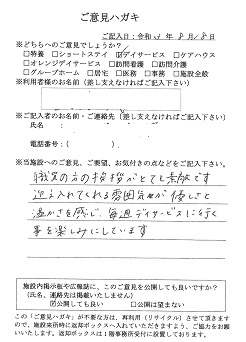 ご意見ハガキ
ご記入日：令和 年 8月18日
※どちらへのご意見でしょうか？
□特養 □ショートステイ ☑デイサービス □ケアハウス
□オレンジデイサービス □訪問看護 □訪問介護
□グループホーム □居宅 □医務 □事務 □施設全般
※利用者様のお名前（差し支えなければご記入下さい。）
※ご記入者のお名前・ご連絡先（差し支えなければご記入下さい。）
氏名：
電話番号：（ ）
※当施設へのご意見、ご要望、お気付きの点などをご記入下さい。
職員の方の挨拶がとても素敵です
迎え入れてくれる雰囲気が優しさと
温かさを感じ、毎週デイサービスに行く
事を楽しみにしています
施設内掲示板や広報誌に、このご意見を公開しても良いですか？
（氏名、連絡先は掲載いたしません）
☑公開しても良い □公開は望まない
この「ご意見ハガキ」が不要な方は、再利用（リサイクル）させて頂きますので、施設来所時に返却ボックスへ入れていただきますよう、ご協力をお願いいたします。返却ボックスは1階事務所受付に設置しております。